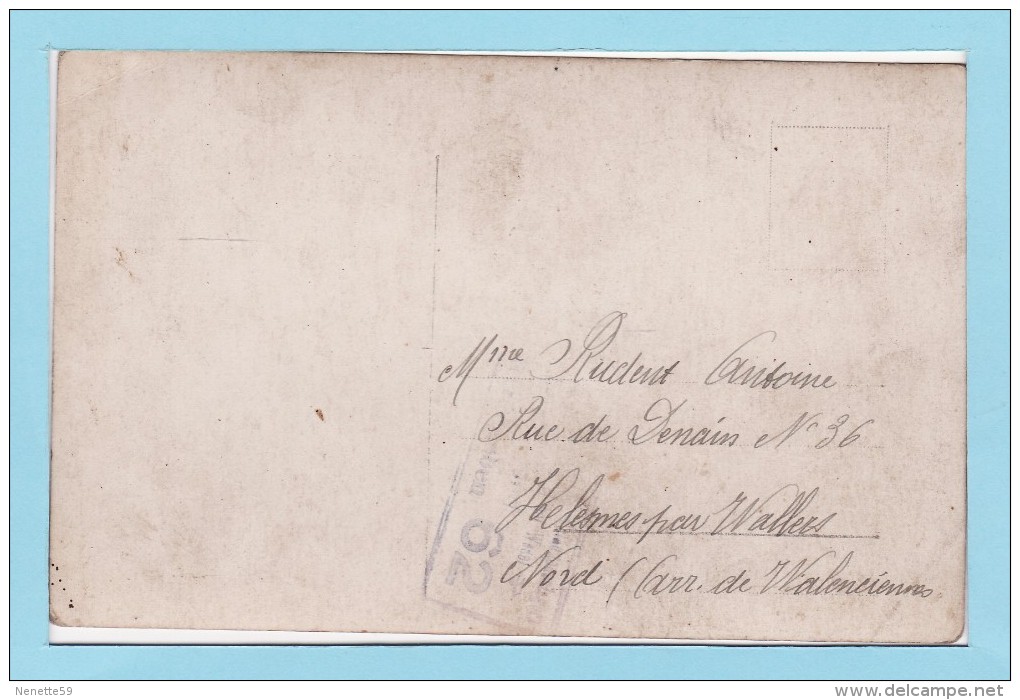 Mme Rudent Antoine
Rue de Denain N° 36
Helesmes par Wallers
Nord (Arr. de Walenciennes
62
Nenette59
www.delcampe.net